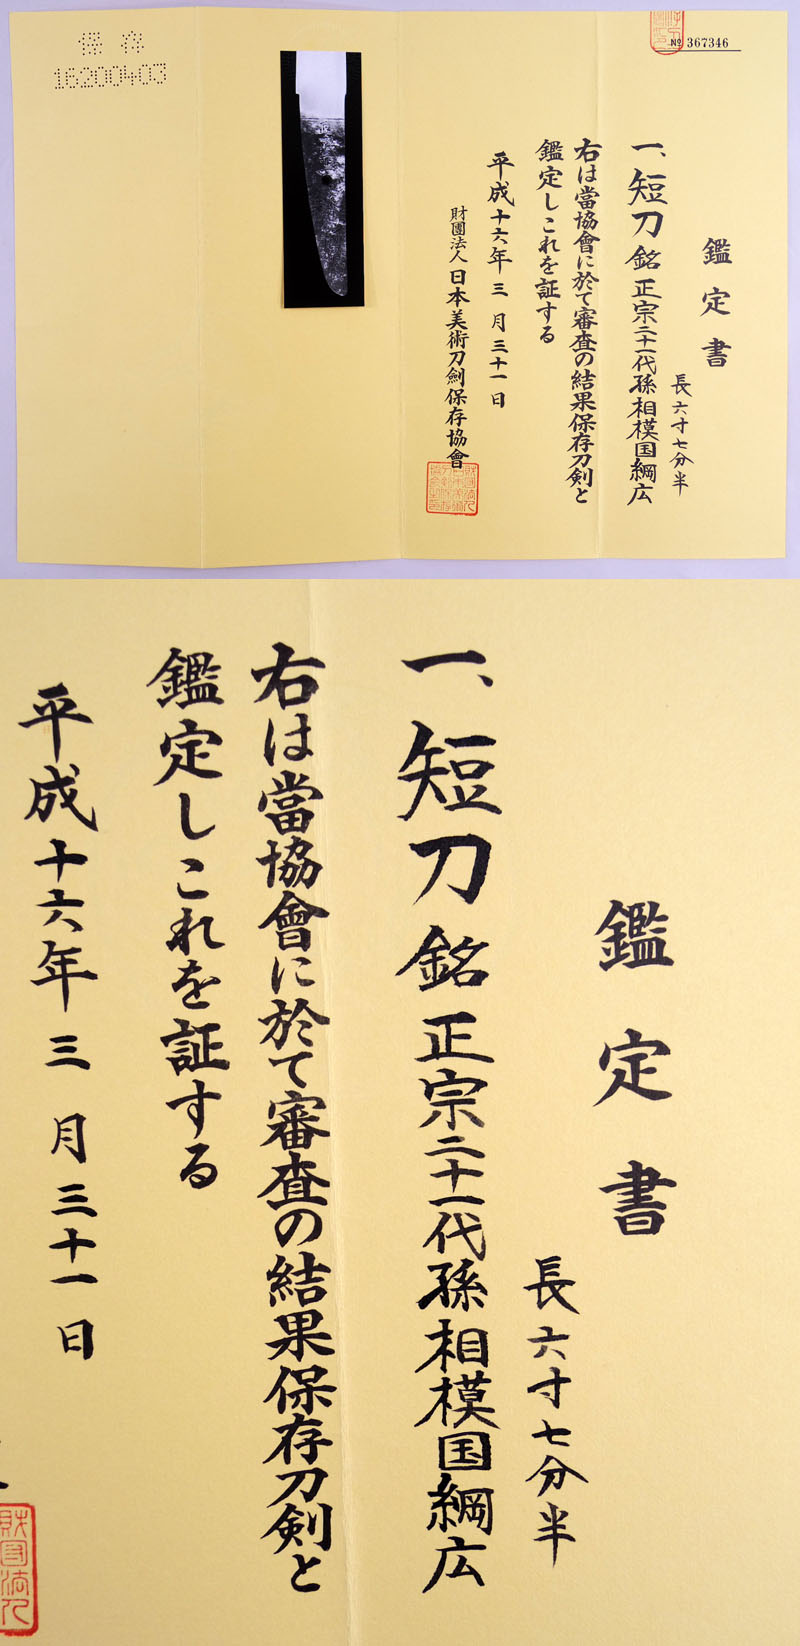 № 367346
鑑定書
長六寸七分半
一、短刀 銘 正宗二十一代孫相模国綱広
右は當協會に於て審査の結果保存刀剣と
鑑定しこれを証する
平成十六年三月三十一日
財團法人日本美術刀劍保存協會
保存
16200403
鑑定書
長六寸七分半
一、短刀 銘 正宗二十一代孫相模国綱広
右は當協會に於て審査の結果保存刀剣と
鑑定しこれを証する
平成十六年三月三十一日